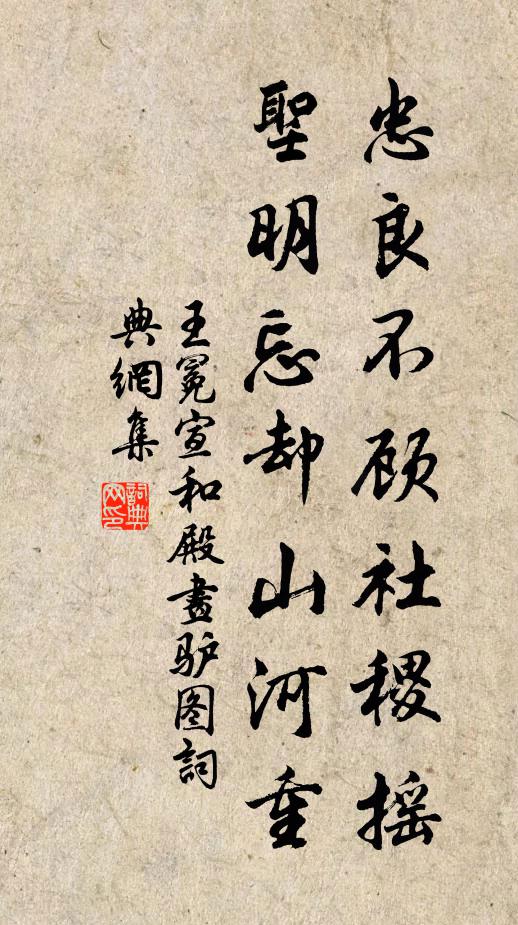 忠良不顾社稷摇
聖明忘却山河重
王冕宣和殿畫驴图詞
典網集
詞典網印